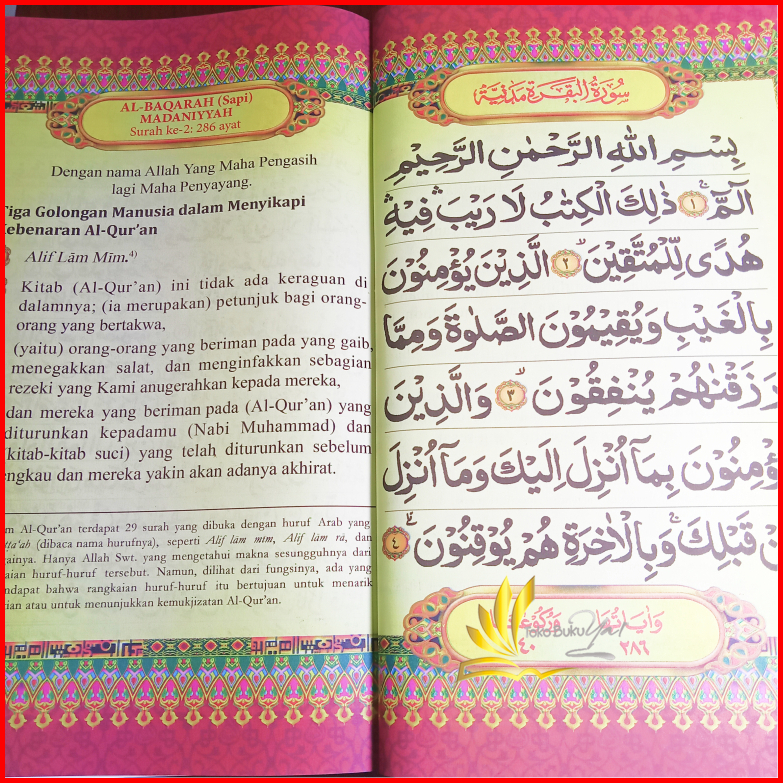 AL-BAQARAH (Sapi)
MADANIYYAH
Surah ke-2: 286 ayat
Dengan nama Allah Yang Maha Pengasih
lagi Maha Penyayang.
Tiga Golongan Manusia dalam Menyikapi
Kebenaran Al-Qur’an
Alif Lām Mīm.⁴⁾
Kitab (Al-Qur’an) ini tidak ada keraguan di
dalamnya; (ia merupakan) petunjuk bagi orang-
orang yang bertakwa,
(yaitu) orang-orang yang beriman pada yang gaib,
menegakkan salat, dan menginfakkan sebagian
rezeki yang Kami anugerahkan kepada mereka,
dan mereka yang beriman pada (Al-Qur’an) yang
diturunkan kepadamu (Nabi Muhammad) dan
(kitab-kitab suci) yang telah diturunkan sebelum
engkau dan mereka yakin akan adanya akhirat.
Al-Qur’an terdapat 29 surah yang dibuka dengan huruf Arab yang
(dibaca nama hurufnya), seperti Alif lām mīm, Alif lām rā, dan
Hanya Allah Swt. yang mengetahui makna sesungguhnya dari
huruf-huruf tersebut. Namun, dilihat dari fungsinya, ada yang
bahwa rangkaian huruf-huruf itu bertujuan untuk menarik
atau untuk menunjukkan kemukjizatan Al-Qur’an.
سُوْرَةُ الْبَقَرَةِ مَدَنِيَّةٌ
بِسْمِ اللّٰهِ الرَّحْمٰنِ الرَّحِيْمِ
الۤمّۤ ۚ ١ ذٰلِكَ الْكِتٰبُ لَا رَيْبَ ۛ فِيْهِ ۛ
هُدًى لِّلْمُتَّقِيْنَۙ ٢ الَّذِيْنَ يُؤْمِنُوْنَ
بِالْغَيْبِ وَيُقِيْمُوْنَ الصَّلٰوةَ وَمِمَّا
رَزَقْنٰهُمْ يُنْفِقُوْنَ ۙ ٣ وَالَّذِيْنَ
يُؤْمِنُوْنَ بِمَآ اُنْزِلَ اِلَيْكَ وَمَآ اُنْزِلَ
قَبْلِكَ ۚ وَبِالْاٰخِرَةِ هُمْ يُوْقِنُوْنَۗ ٤
٢٨٦
٤٠
Toko Buku